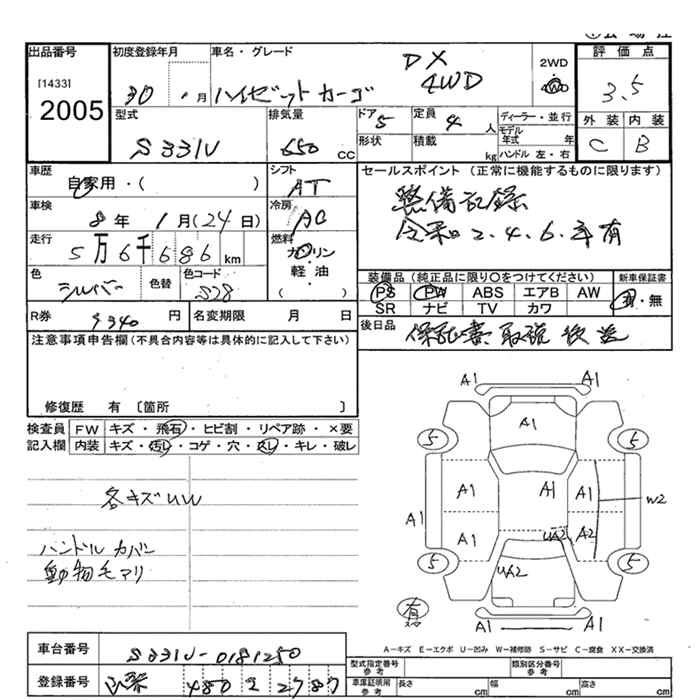 出品番号
[1433]
2005
初度登録年月
30 . 1月
車名・グレード
ハイゼットカーゴ
DX
4WD
2WD
4WD
評価点
3.5
外装 内装
C B
型式
S331V
排気量
650 cc
ドア 5
形状
定員 4 人
積載 kg
ディーラー・並行
モデル年式 年
ハンドル 左・右
車歴
自家用・( )
シフト
AT
車検
8年 1月(24日)
冷房
AC
走行
5万6千686km
燃料
ガソリン
・
軽・油
( )
色
シルバー
色替
色コード
S28
R券 9340 円
名変期限 月 日
セールスポイント (正常に機能するものに限ります)
整備記録
令和 2.4.6.年有
装備品 (純正品に限り〇をつけてください)
新車保証書
PS PW ABS エアB AW
有・無
SR ナビ TV カワ
後日品
保証書 取説 後送
注意事項申告欄(不具合内容等は具体的に記入して下さい)
修復歴 有 〔箇所 〕
検査員 FW キズ・飛石・ヒビ割・リペア跡・×要
記入欄 内装 キズ・汚レ・コゲ・穴・スレ・キレ・破レ
各キズUW
ハンドルカバー
動物毛アリ
A1 A1
A1
5 5
A1 A1 A1 W2
A1 A1 UA2 A2 A1
5 UA2 5
有
スペア
A1 A1
A-キズ E-エクボ U-凹み W-補修跡 S-サビ C-腐食 XX-交換済
車台番号
S331V-0181250
登録番号
480 2787
型式指定番号
参考
類別区分番号
参考
車庫証明用
参考
長さ cm
幅 cm
高さ cm